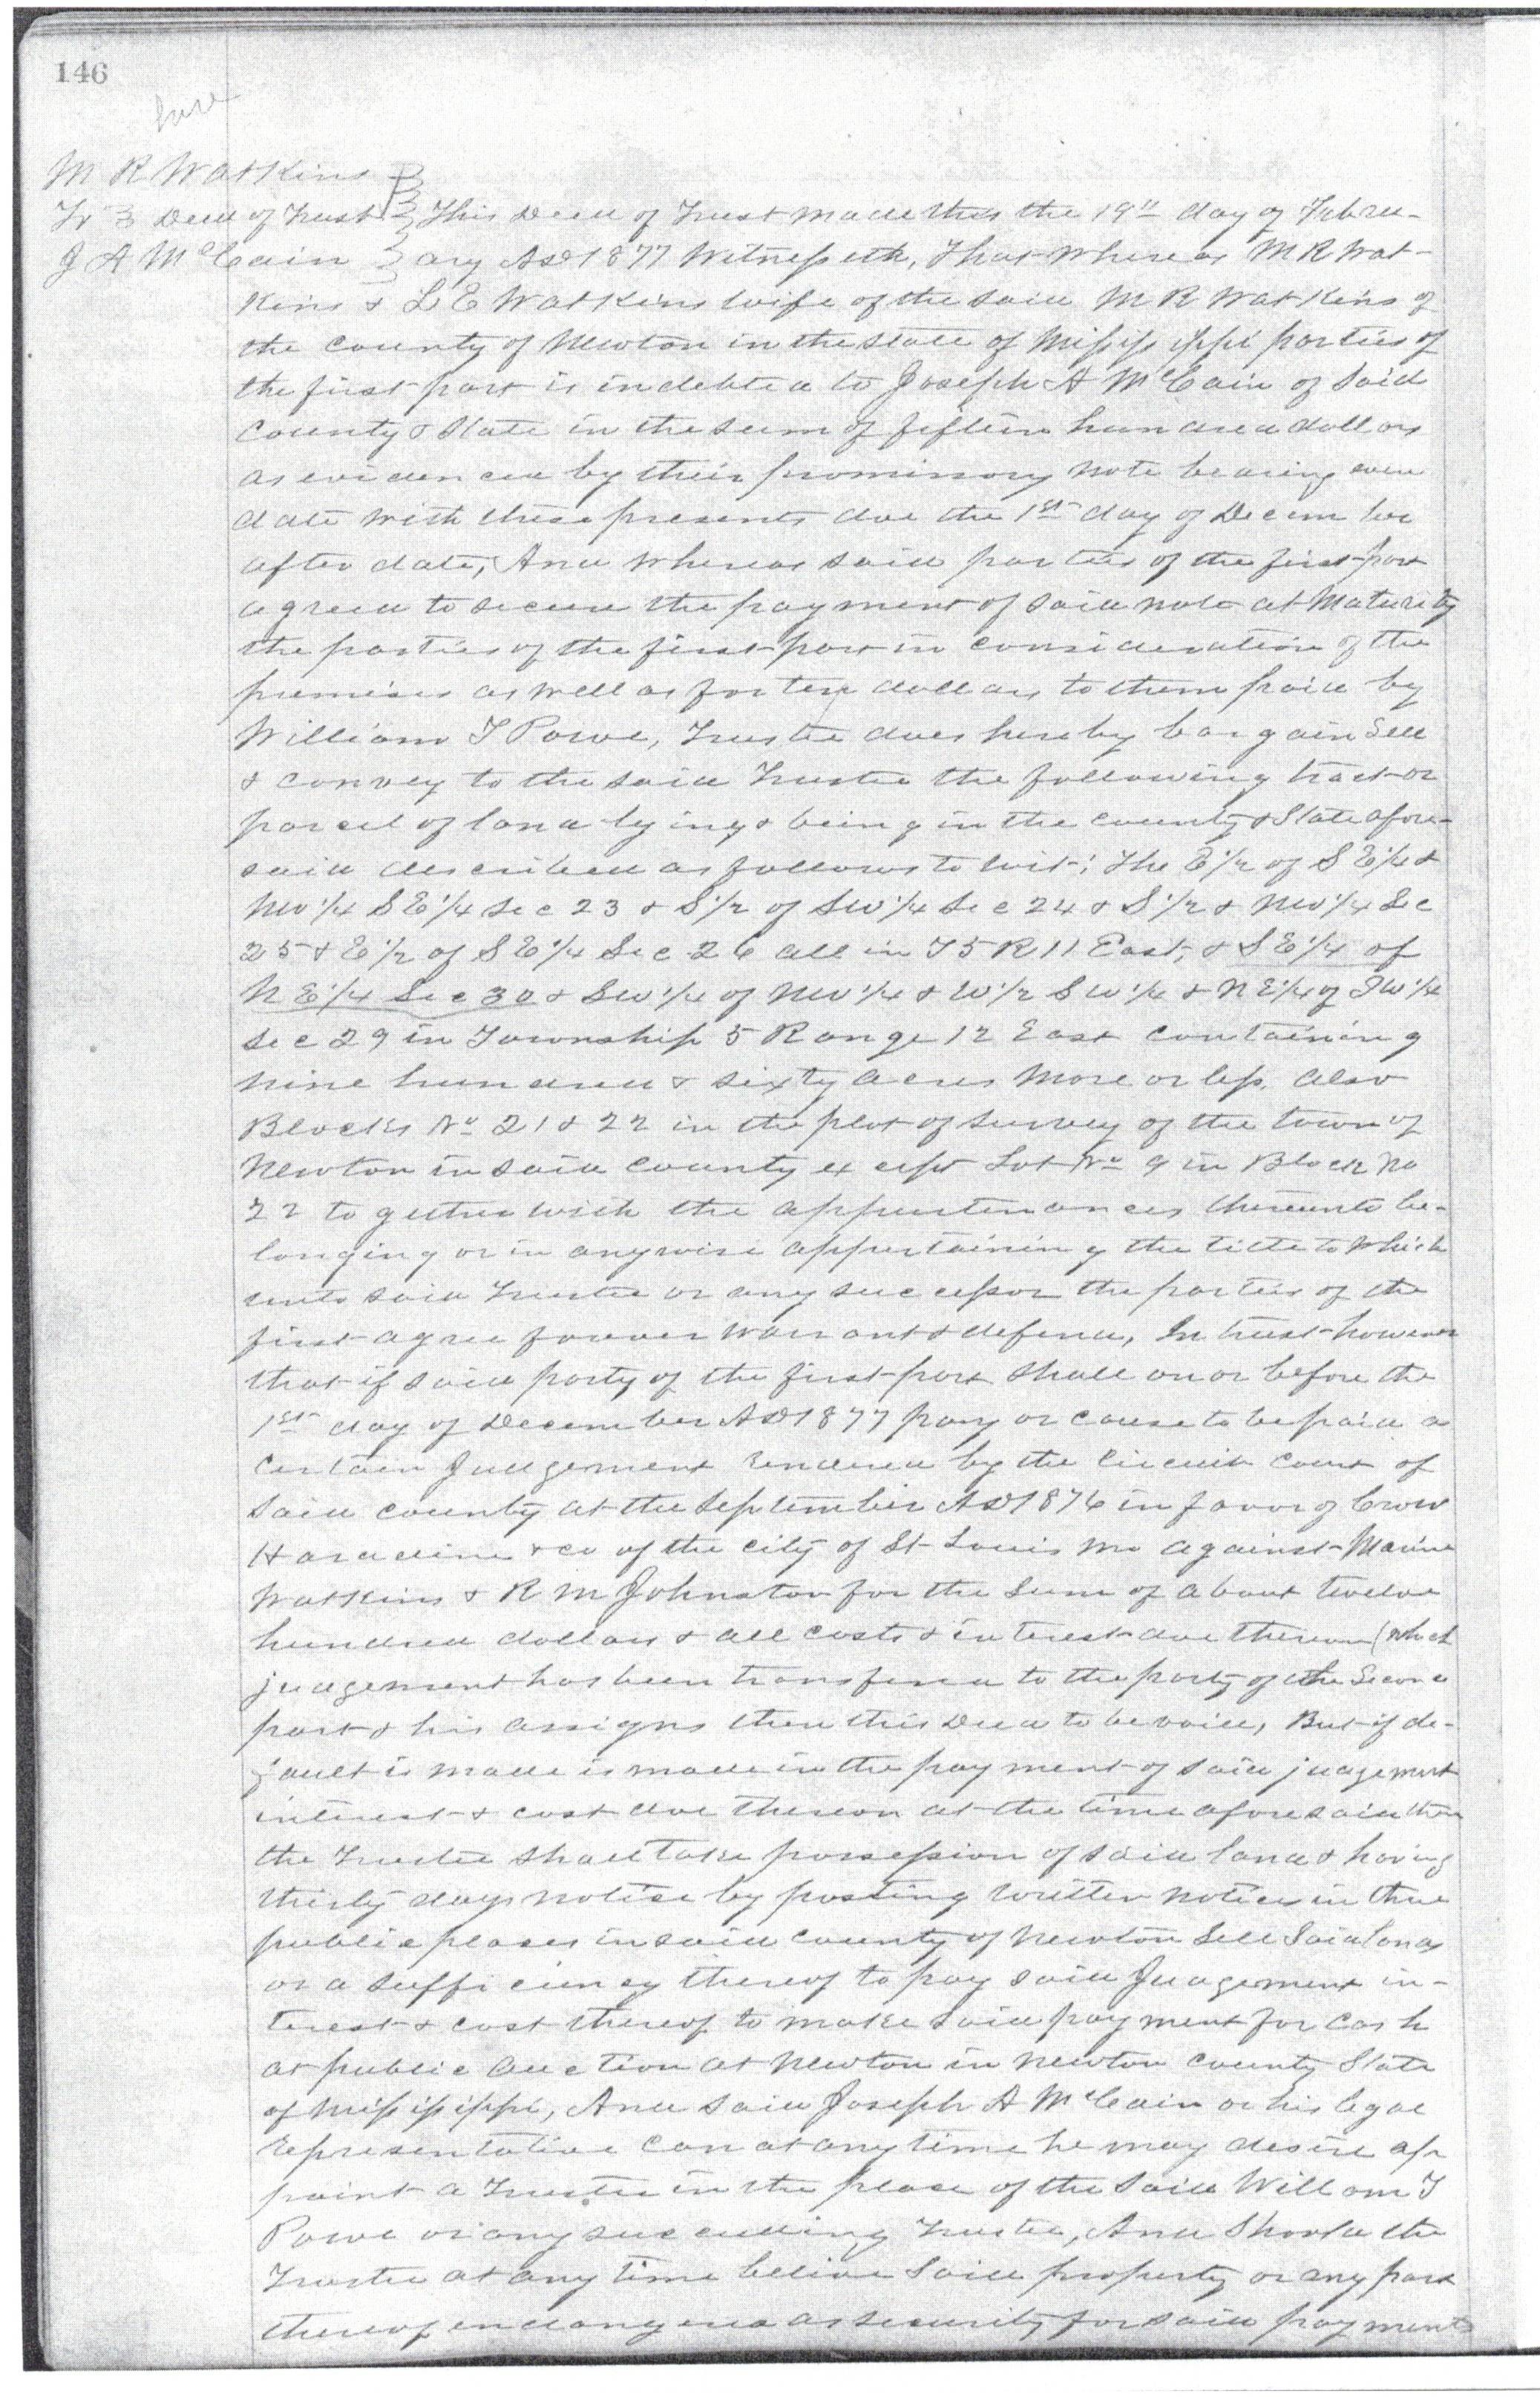 146
M R Watkins
To } Deed of Trust } This Deed of Trust made this the 19" day of Febru-
J A McCain } ary AD 1877 Witnesseth, That Whereas M R Wat-
kins & L E Watkins wife of the said M R Watkins of
the county of Newton in the state of Mississippi parties of
the first part is indebted to Joseph A McCain of said
County & State in the sum of fifteen hundred dollars
as evidenced by their promissory note bearing even
date with these presents due the 1st day of December
after date, And whereas said parties of the first part
agreed to secure the payment of said note at Maturity
the parties of the first part in consideration of the
premises as well as for ten dollars to them paid by
William T Powe, Trustee does hereby bargain Sell
& convey to the said Trustee the following tract or
parcel of land lying & being in the county & State afore-
said described as follows to wit: The E 1/2 of S E 1/4 &
NW 1/4 S E 1/4 Sec 23 & S 1/2 of SW 1/4 Sec 24 & S 1/2 & NW 1/4 Sec
25 & E 1/2 of S E 1/4 Sec 26 all in T 5 R 11 East, & S E 1/4 of
N E 1/4 Sec 30 & SW 1/4 of NW 1/4 & W 1/2 S W 1/4 & N E 1/4 of SW 1/4
Sec 29 in Township 5 Range 12 East containing
nine hundred & sixty acres More or less. Also
Blocks No 21 & 22 in the plat of survey of the town of
Newton in said county except Lot No 9 in Block No
22 together with the appurtenances thereunto be-
longing or in anywise appertaining the title to which
unto said Trustee or any successor the parties of the
first agree forever warrant & defend, In trust however
that if said party of the first part shall on or before the
1st day of December AD 1877 pay or cause to be paid a
certain Judgement rendered by the Circuit Court of
said county at the September AD 1876 in favor of Crow
Haradine & co of the city of St Louis Mo against
Watkins & R M Johnston for the Sum of about twelve
hundred dollars & all costs & interest due thereon (which
judgement has been transfered to the party of the Second
part & his assigns then this Deed to be void, But if de-
fault is made is made in the payment of said judgement
interest & cost due thereon at the time aforesaid then
the Trustee shall take possession of said land & having
thirty days notice by posting written notices in three
public places in said county of Newton Sell Said land
or a sufficiency thereof to pay said Judgement in-
terest & cost thereof to make said payment for Cash
at public auction at Newton in Newton County State
of Mississippi, And said Joseph A McCain or his legal
representative can at anytime he may desire ap
point a Trustee in the place of the said Willam T
Powe or any succeeding Trustee, And Should the
Trustee at any time believe Said property or any part
thereof endangered as security for said payment